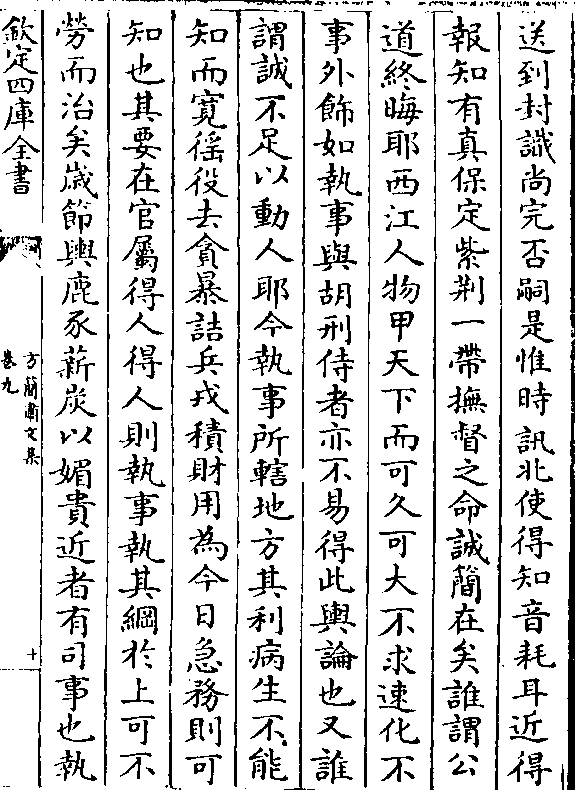 送到封識尚完否嗣是惟時訊北使得知音耗耳近得
報知有真保定紫荆一帶撫督之命誠簡在矣誰謂公
道終晦耶西江人物甲天下而可久可大不求速化不
事外飾如執事與胡刑侍者亦不易得此輿論也又誰
謂誠不足以動人耶今執事所轄地方其利病生不能
知而寛徭役去貪暴詰兵戎積財用為今日急務則可
知也其要在官屬得人得人則執事執其綱於上可不
勞而治矣歳節輿鹿豕薪炭以媚貴近者有司事也執
欽定四庫全書
方簡肅文集
卷九
十